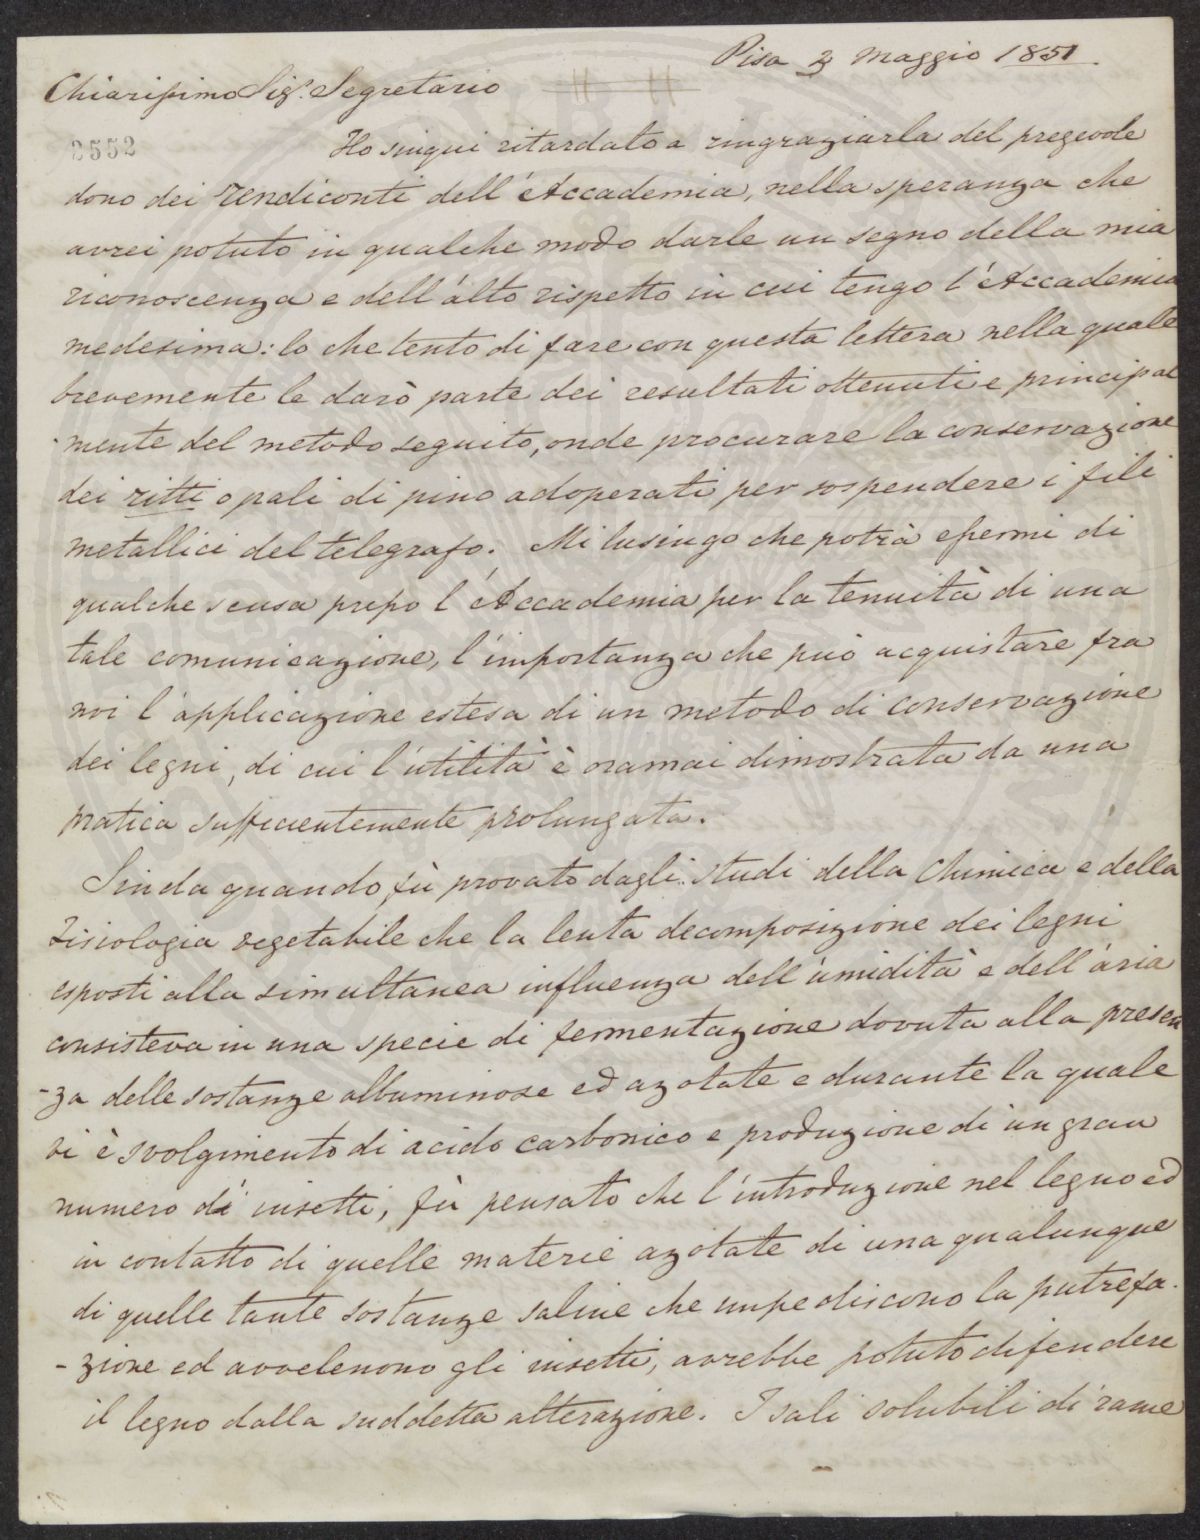 Pisa 3 Maggio 1851.
Chiarissimo Sig.r Segretario
2552
Ho sinqui ritardato a ringraziarla del pregevole
dono dei rendiconti dell'Accademia, nella speranza che
avrei potuto in qualche modo darle un segno della mia
riconoscenza e dell'alto rispetto in cui tengo l'Accademia
medesima: lo che tento di fare con questa lettera nella quale
brevemente le darò parte dei resultati ottenuti e principal
-mente del metodo seguito, onde procurare la conservazione
dei ritti o pali di pino adoperati per sospendere i fili
metallici del telegrafo. Mi lusingo che potrà essermi di
qualche scusa presso l'Accademia per la tenuità di una
tale comunicazione, l'importanza che può acquistare fra
noi l'applicazione estesa di un metodo di conservazione
dei legni, di cui l'utilità è oramai dimostrata da una
pratica sufficientemente prolungata.
Sin da quando fù provato dagli studi della Chimica e della
Fisiologia vegetabile che la lenta decomposizione dei legni
esposti alla simultanea influenza dell'umidità e dell'aria
consisteva in una specie di fermentazione dovuta alla presen
-za delle sostanze albuminose ed azotate e durante la quale
vi è svolgimento di acido carbonico e produzione di un gran
numero di insetti, fù pensato che l'introduzione nel legno ed
in contatto di quelle materie azotate di una qualunque
di quelle tante sostanze saline che impediscono la putrefa-
-zione ed avvelenono gli insetti, avrebbe potuto difendere
il legno dalla suddetta alterazione. I sali solubili di rame